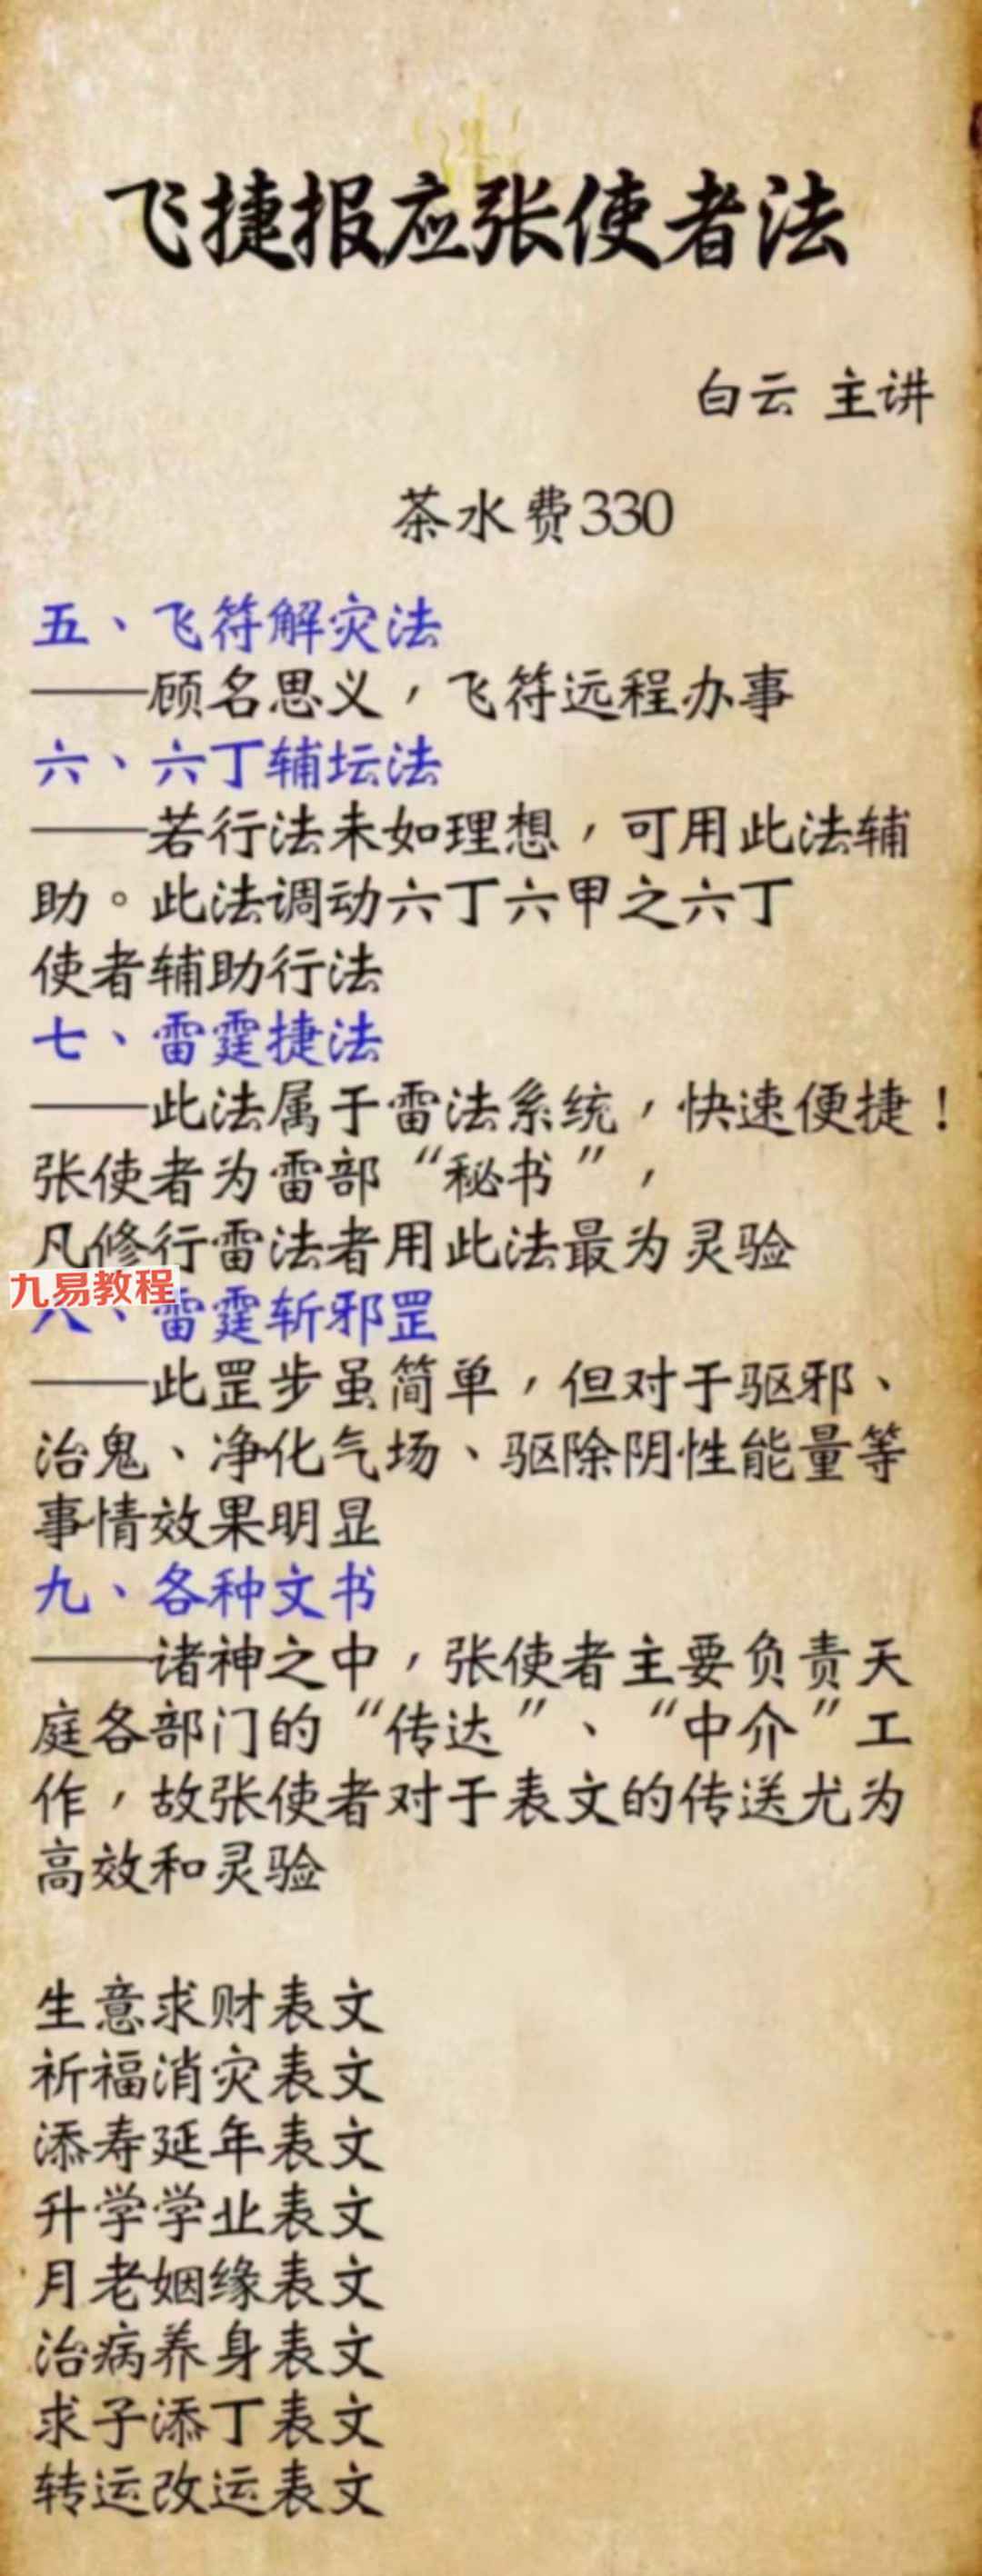 飞捷报应张使者法
白云 主讲
茶水费330
五、飞符解灾法
——顾名思义，飞符远程办事
六、六丁辅坛法
——若行法未如理想，可用此法辅
助。此法调动六丁六甲之六丁
使者辅助行法
七、雷霆捷法
——此法属于雷法系统，快速便捷！
张使者为雷部“秘书”，
凡修行雷法者用此法最为灵验
九易教程
八、雷霆斩邪罡
——此罡步虽简单，但对于驱邪、
治鬼、净化气场、驱除阴性能量等
事情效果明显
九、各种文书
——诸神之中，张使者主要负责天
庭各部门的“传达”、“中介”工
作，故张使者对于表文的传送尤为
高效和灵验
生意求财表文
祈福消灾表文
添寿延年表文
升学学业表文
月老姻缘表文
治病养身表文
求子添丁表文
转运改运表文